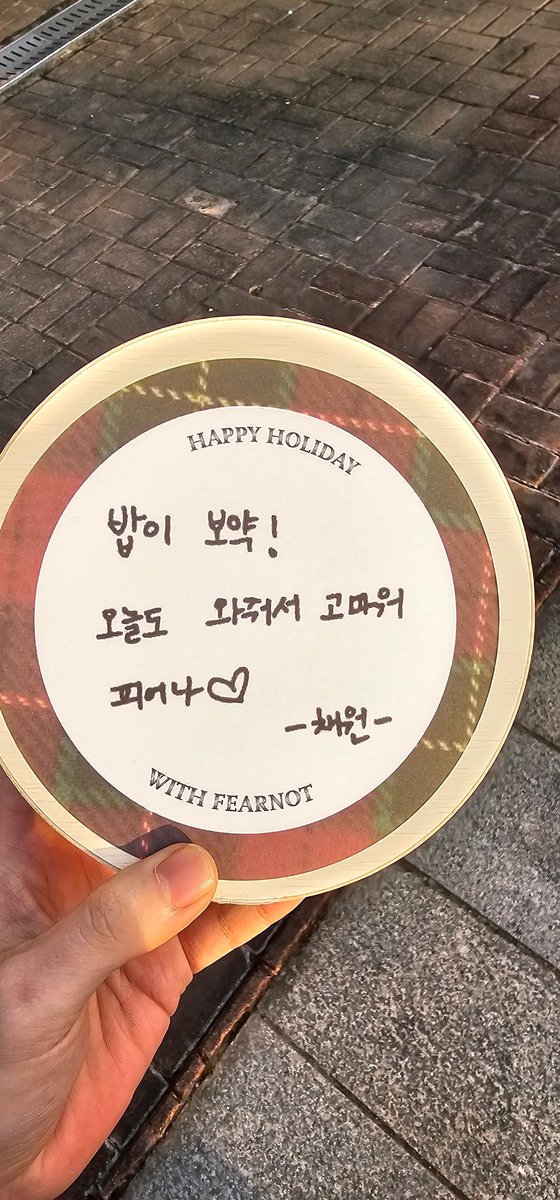 HAPPY HOLIDAY
밥이 보약!
오늘도 와줘서 고마워
피어나♡
-채원-
WITH FEARNOT